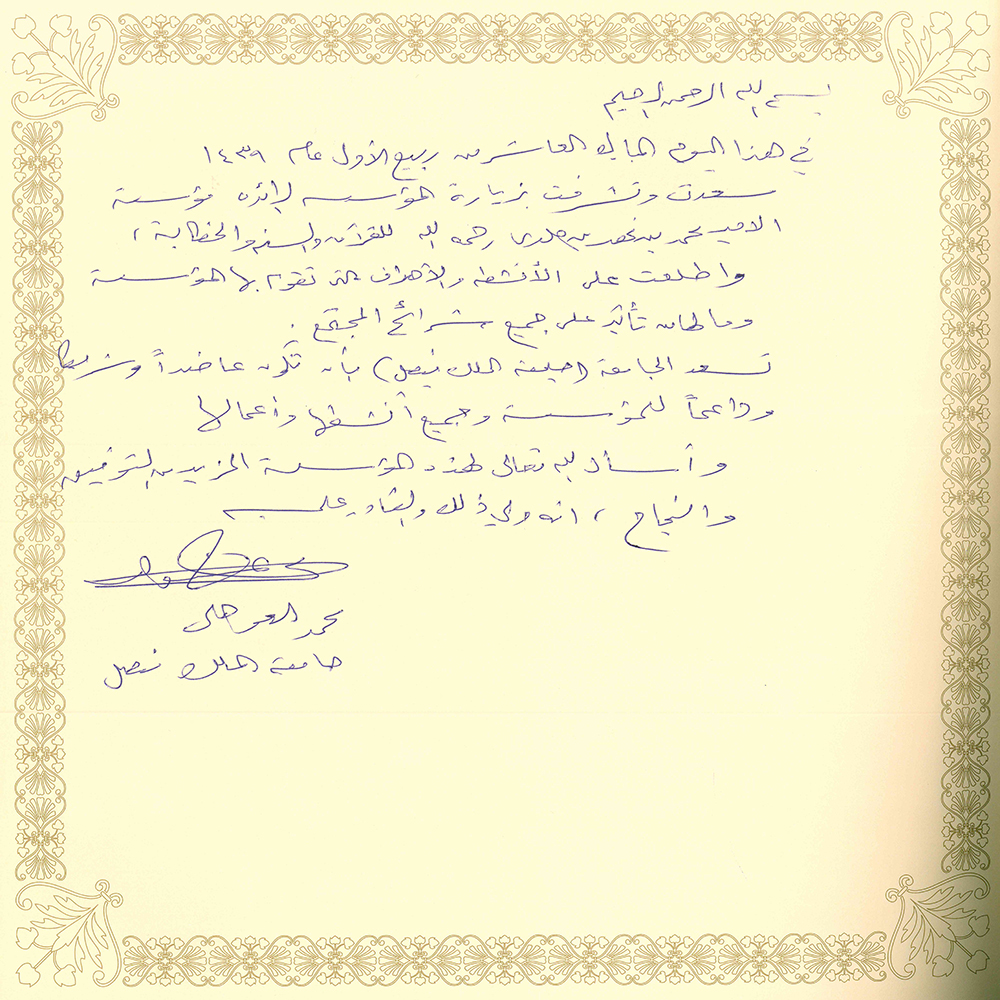 بسم الله الرحمن الرحيم
في هذا اليوم المبارك العاشر من ربيع الأول عام ١٤٣٩
سعدت وتشرفت بزيارة المؤسسة الرائدة مؤسسة
الامير محمد بن فهد بن جلوي رحمه الله للقرآن والسنة والخطابة ،
واطلعت على الأنشطة والأهداف التي تقوم بها المؤسسة
وما لها من تأثير على جميع شرائح المجتمع .
تسعد الجامعة (جامعة الملك فيصل) بأن تكون عاضداً وشريكا
وداعماً للمؤسسة وجميع أنشطتها وأعمالها
وأسأل الله تعالى لهذه المؤسسة المزيد من التوفيق
والنجاح ، انه ولي ذلك والقادر عليه
محمد العوهلي
جامعة الملك فيصل